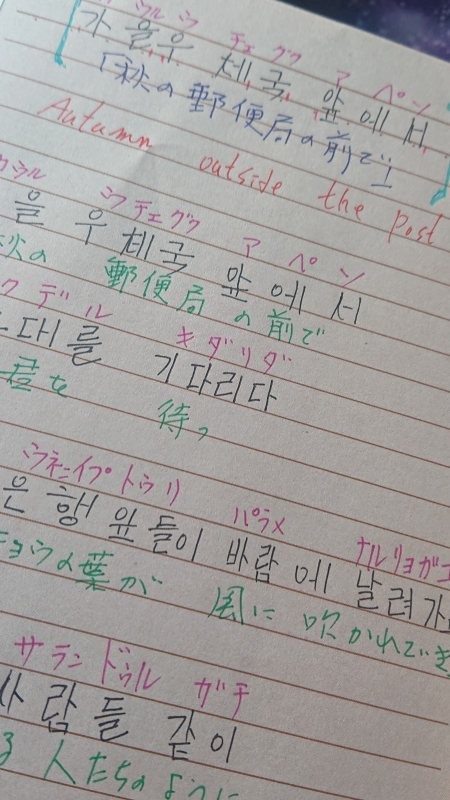 ウルウ チェグク ア ペン
가 을우 체국 앞에서
「秋の郵便局の前で」
Autumn outside the Post
ウル ウ チェグク ア ペン
을 우체국 앞에서
秋の 郵便局 の前で
クデル キダリダ
그대를 기다리다
君を 待つ
ウネンイプトゥリ パラメ ナルリョガ
은행잎들이 바람에 날려가
チョウの葉が 風に吹かれてき
サラン ドゥル ガチ
사람들 같이
る人たちのように